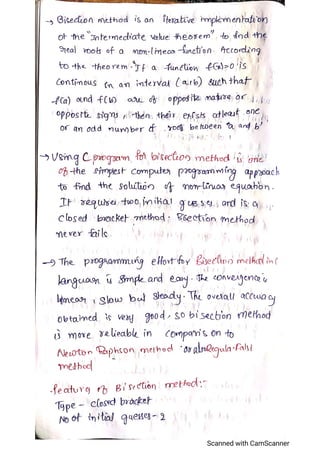 → Bisection method is an iterative implementation
of the "Intermediate value theorem" to find the
real roots of a non-linear function. According
to the theorem "If a function f(x)=0 is
continous in an interval (a,b) such that
f(a) and f(b) are of opposite nature or
opposite signs, then their exists atleast one
or an odd number of roots between 'a' and b'
→ Using C program for bisection method is one
of the simplest computer programming approach
to find the solution of non-linear equation.
It requires two initial guesses and is a
closed bracket method. Bisection method
never fails.
→ The programming effort for Bisection method in C
language is simple and easy. The convergence is
linear, slow but steady. The overall accuracy
obtained is very good. so bisection method
is more reliable in comparison to
Newton Raphson method or also Regula-Falsi
method
feature of Bisection method:-
Type - closed bracket
No of initial guesses - 2
Scanned with CamScanner